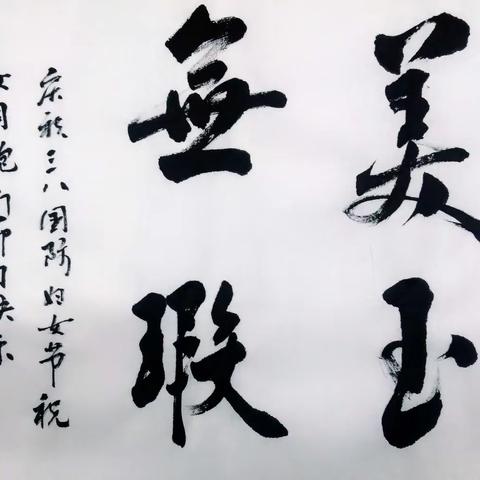 美玉
無瑕
庆祝三八国际妇女节祝
女同胞们节日快乐